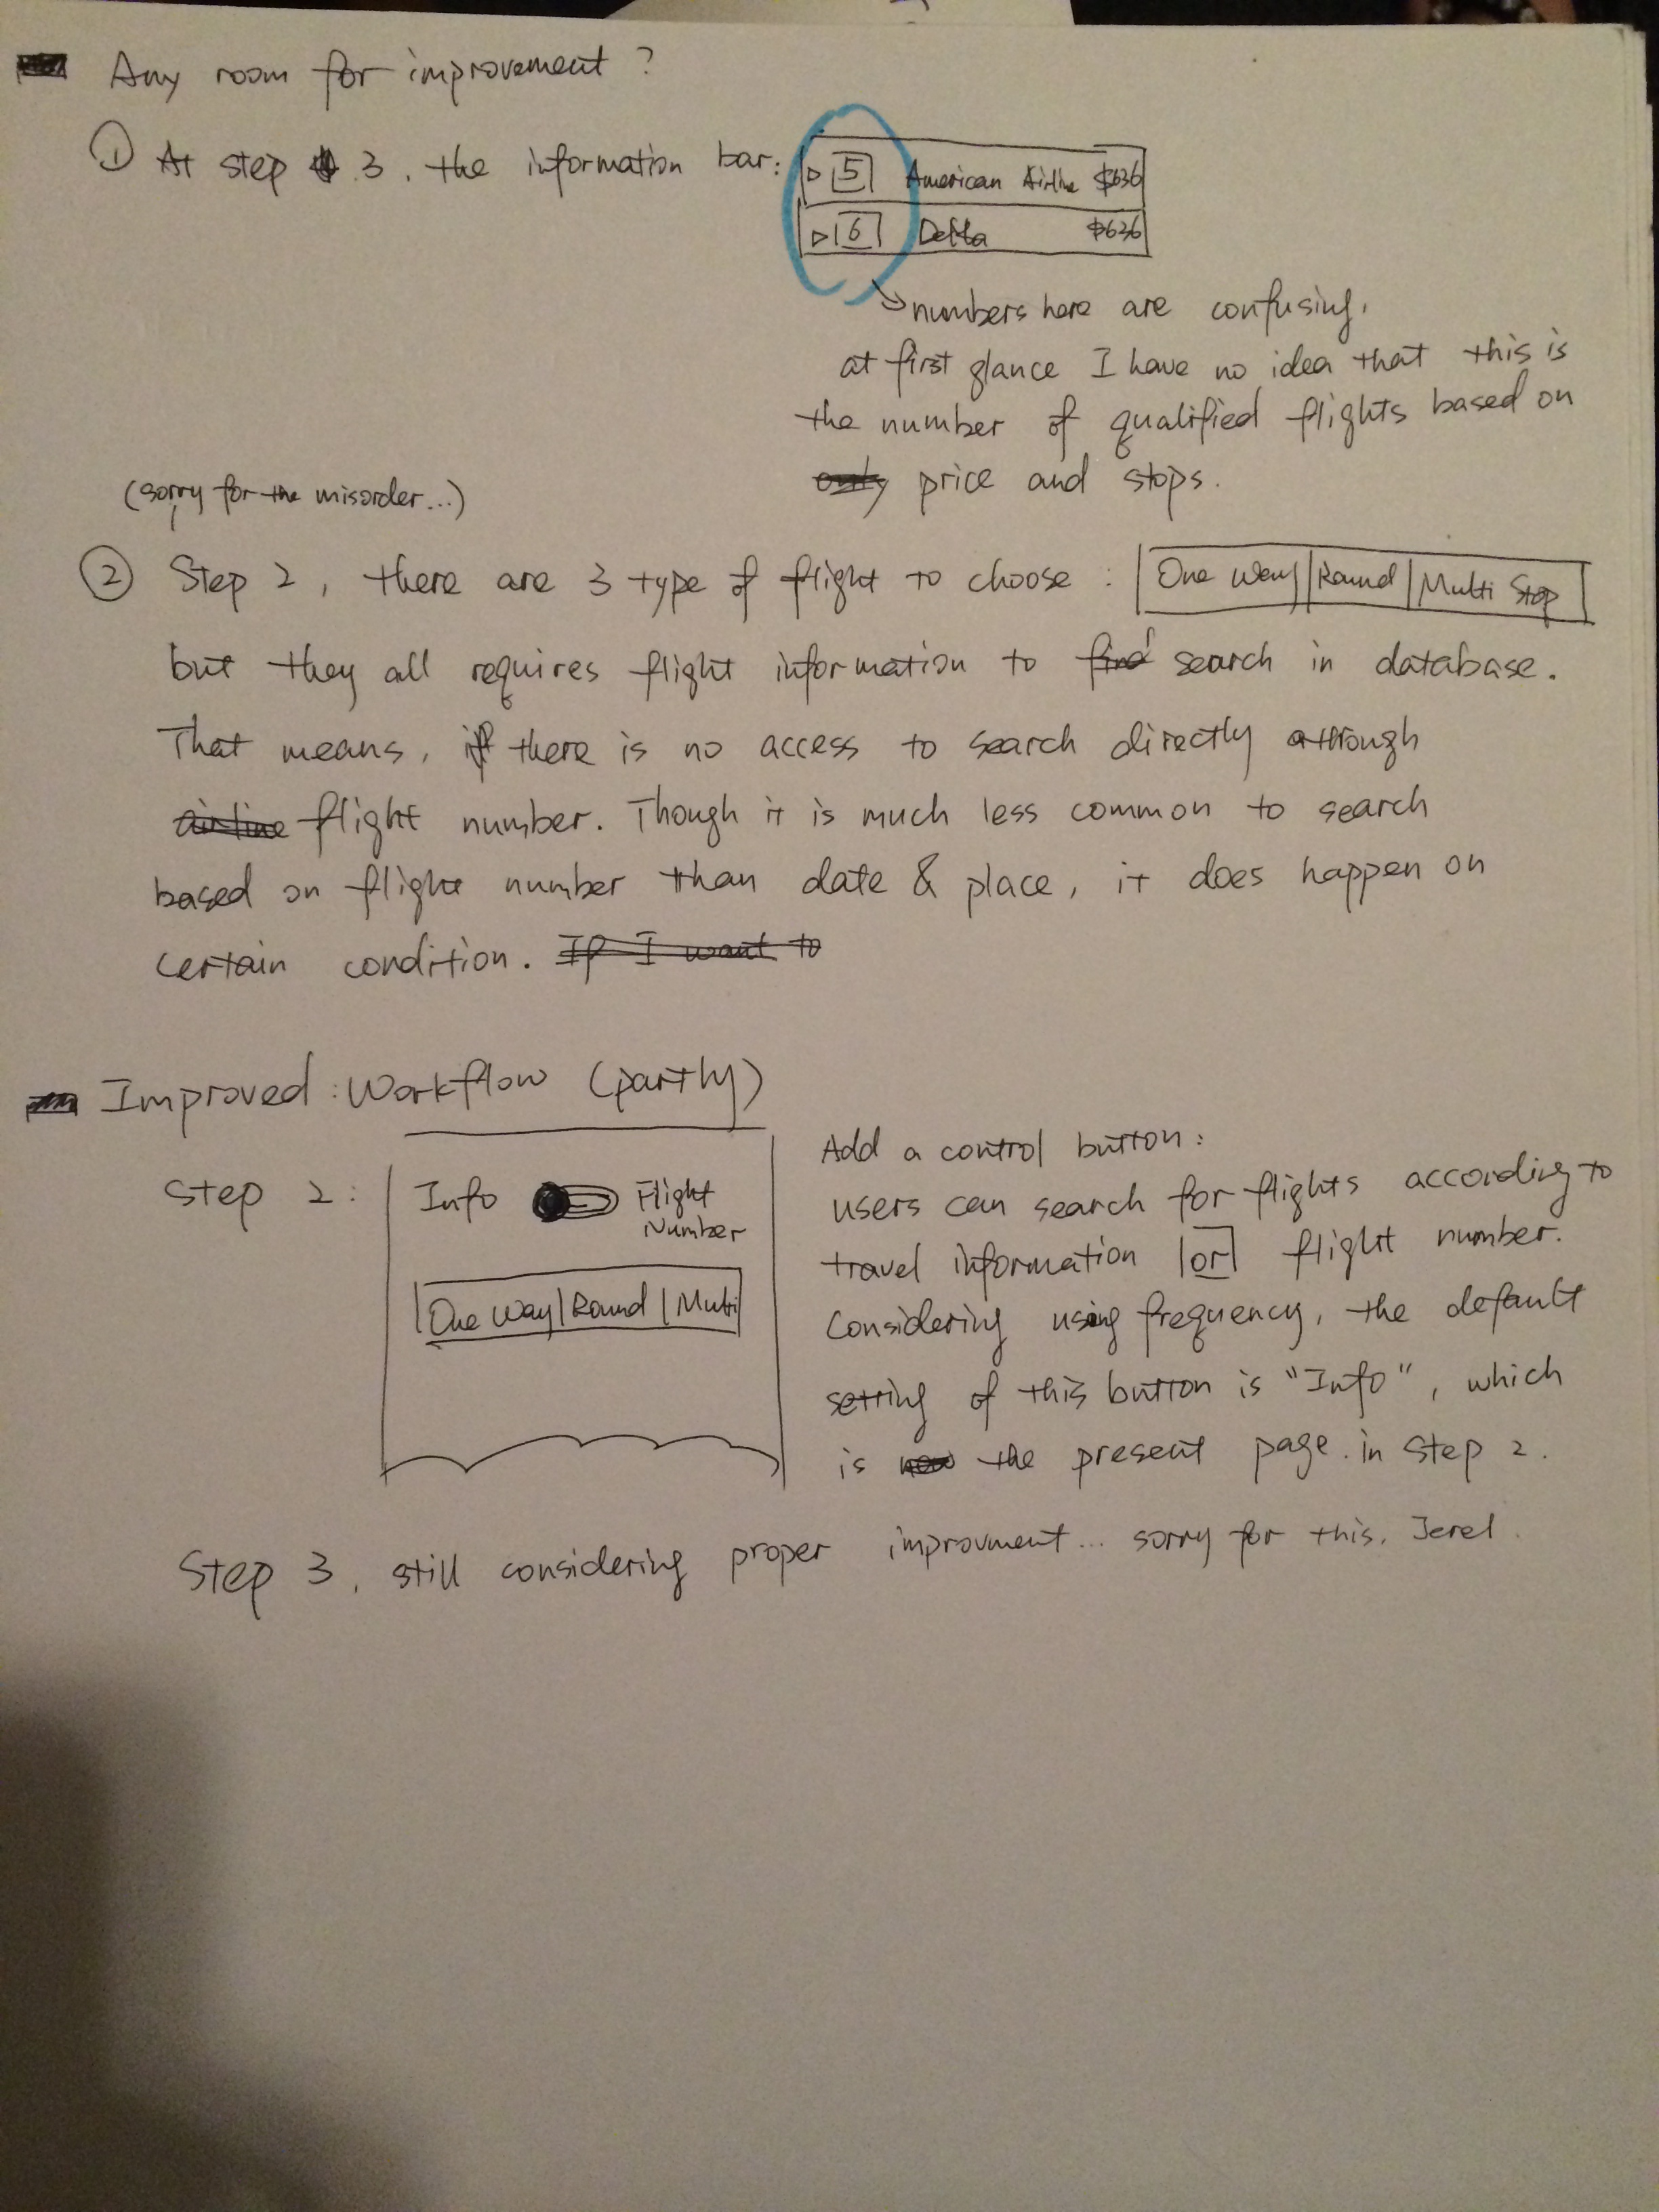 Any room for improvement ?
① At step 3, the information bar:
▷ 5 American Airline $636
▷ 6 Delta $636
numbers here are confusing,
at first glance I have no idea that this is
the number of qualified flights based on
only price and stops.
(sorry for the misorder...)
② Step 2, there are 3 type of flight to choose : One Way | Round | Multi Stop
but they all requires flight information to find search in database.
That means, if there is no access to search directly through
airline flight number. Though it is much less common to search
based on flight number than date & place, it does happen on
certain condition. If I want to
Improved : Workflow (partly)
Step 2 :
Info Flight
Number
One Way | Round | Multi
Add a control button :
users can search for flights according to
travel information or flight number.
Considering using frequency, the default
setting of this button is "Info", which
is now the present page. in step 2.
Step 3, still considering proper improvment... sorry for this, Jerel.